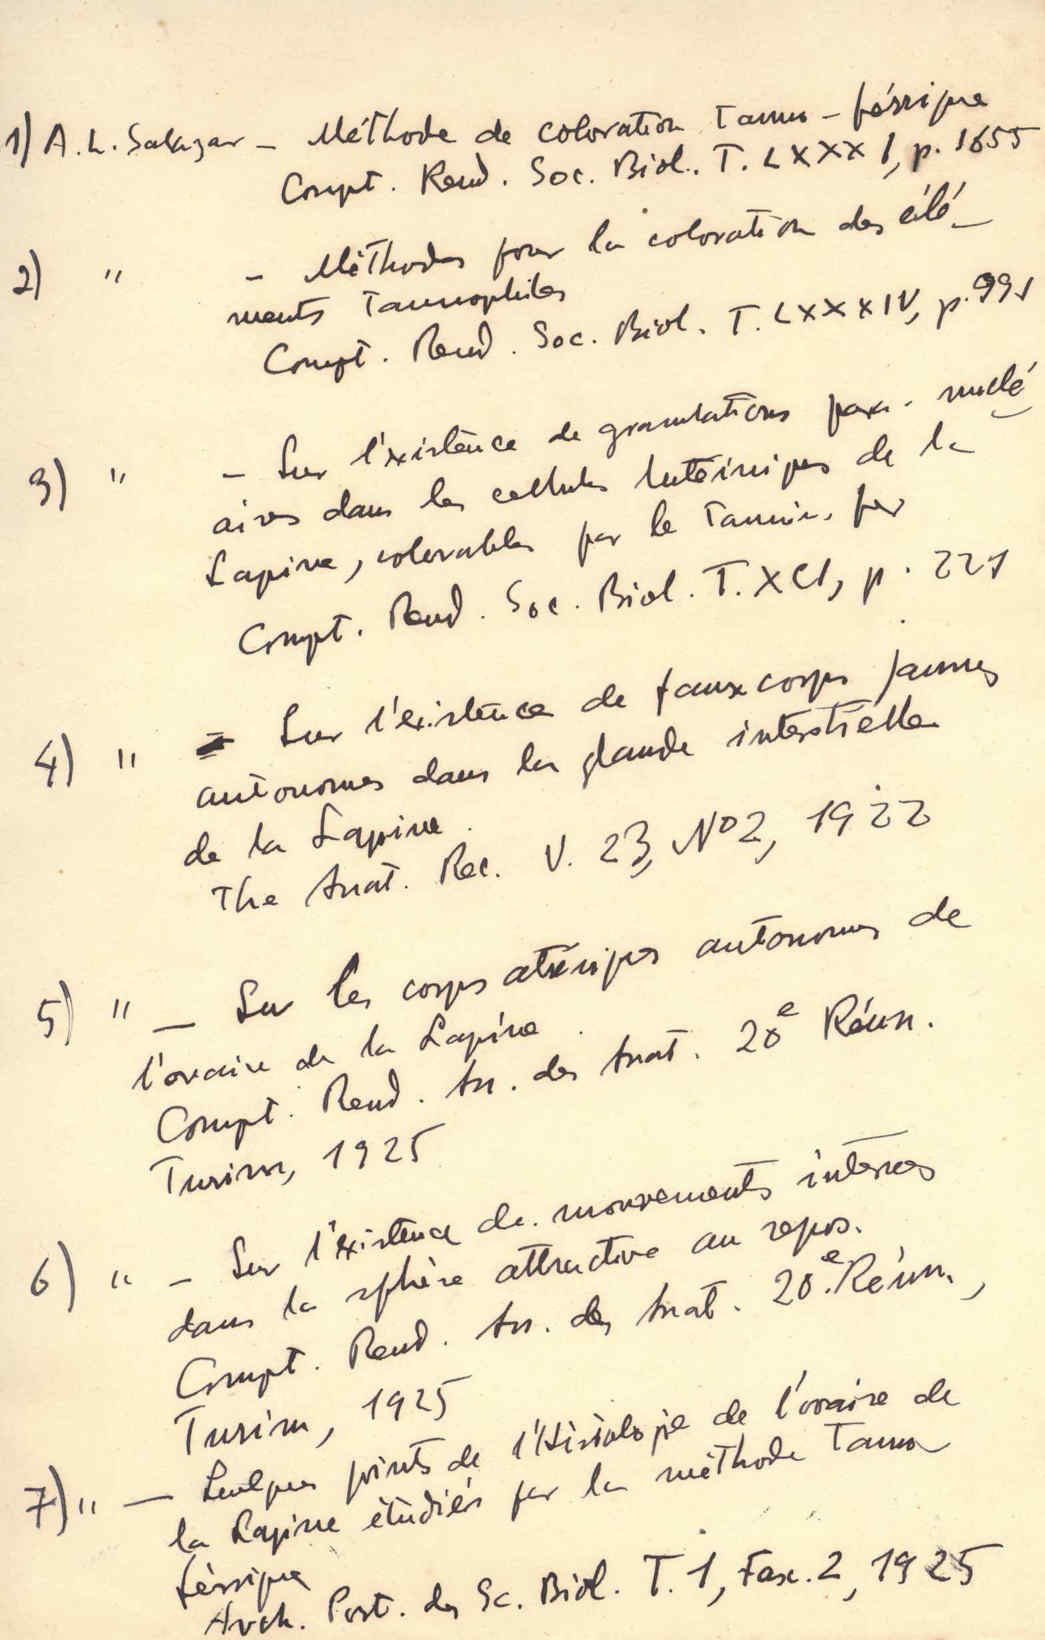 1) A. L. Salazar - Méthode de coloration Tanno-férrique
Compt. Rend. Soc. Biol. T. LXXXI, p. 1655
2) " - Méthodes pour la coloration des élé-
ments Tannophiles
Compt. Rend. Soc. Biol. T. LXXXIV, p. 991
3) " - Sur l'existence de granulations para-nuclé
aires dans les cellules lutéiniques de la
Lapine, colorables par le Tannin-fer
Compt. Rend. Soc. Biol. T. XCI, p. 221
4) " - Sur l'existence de faux corps jaunes
autonomes dans la glande interstitielle
de la Lapine.
The Anat. Rec. V. 23, Nº 2, 1922
5) " - Sur les corps atrésiques autonomes de
l'ovaire de la Lapine.
Compt. Rend. As. des Anat. 20e Réun.
Turim, 1925
6) " - Sur l'existence de mouvements internes
dans la sphère attractive au repos.
Compt. Rend. As. des Anat. 20e Réun.,
Turim, 1925
7) " - Quelques points de l'Histologie de l'ovaire de
la Lapine étudiés par la méthode Tanno
férrique
Arch. Port. des Sc. Biol. T. 1, Fasc. 2, 1925